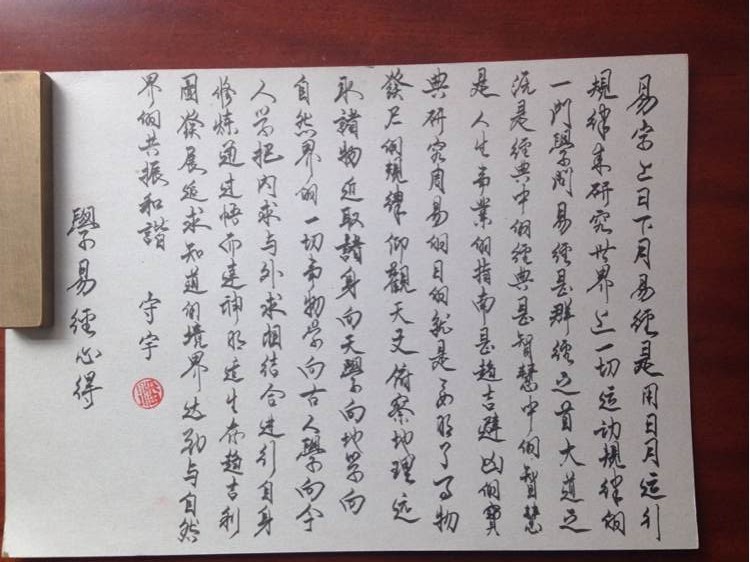 易字上日下月易經是用日月运行
規律来研究世界上一切运动規律的
一门學问易經是群經之首大道之
沅是經典中的經典是智慧中的智慧
是人生事業的指南是趋吉避凶的寶
典研究周易的目的就是要明了事物
發展的規律仰觀天文俯察地理远
取諸物近取諸身向天學向地學向
自然界的一切事物學向古人學向今
人学把内求与外求相结合进行自身
修炼通过悟而達神明造生命趋吉利
團發展追求知道的境界达到与自然
界的共振和諧 守宇
學易經心得